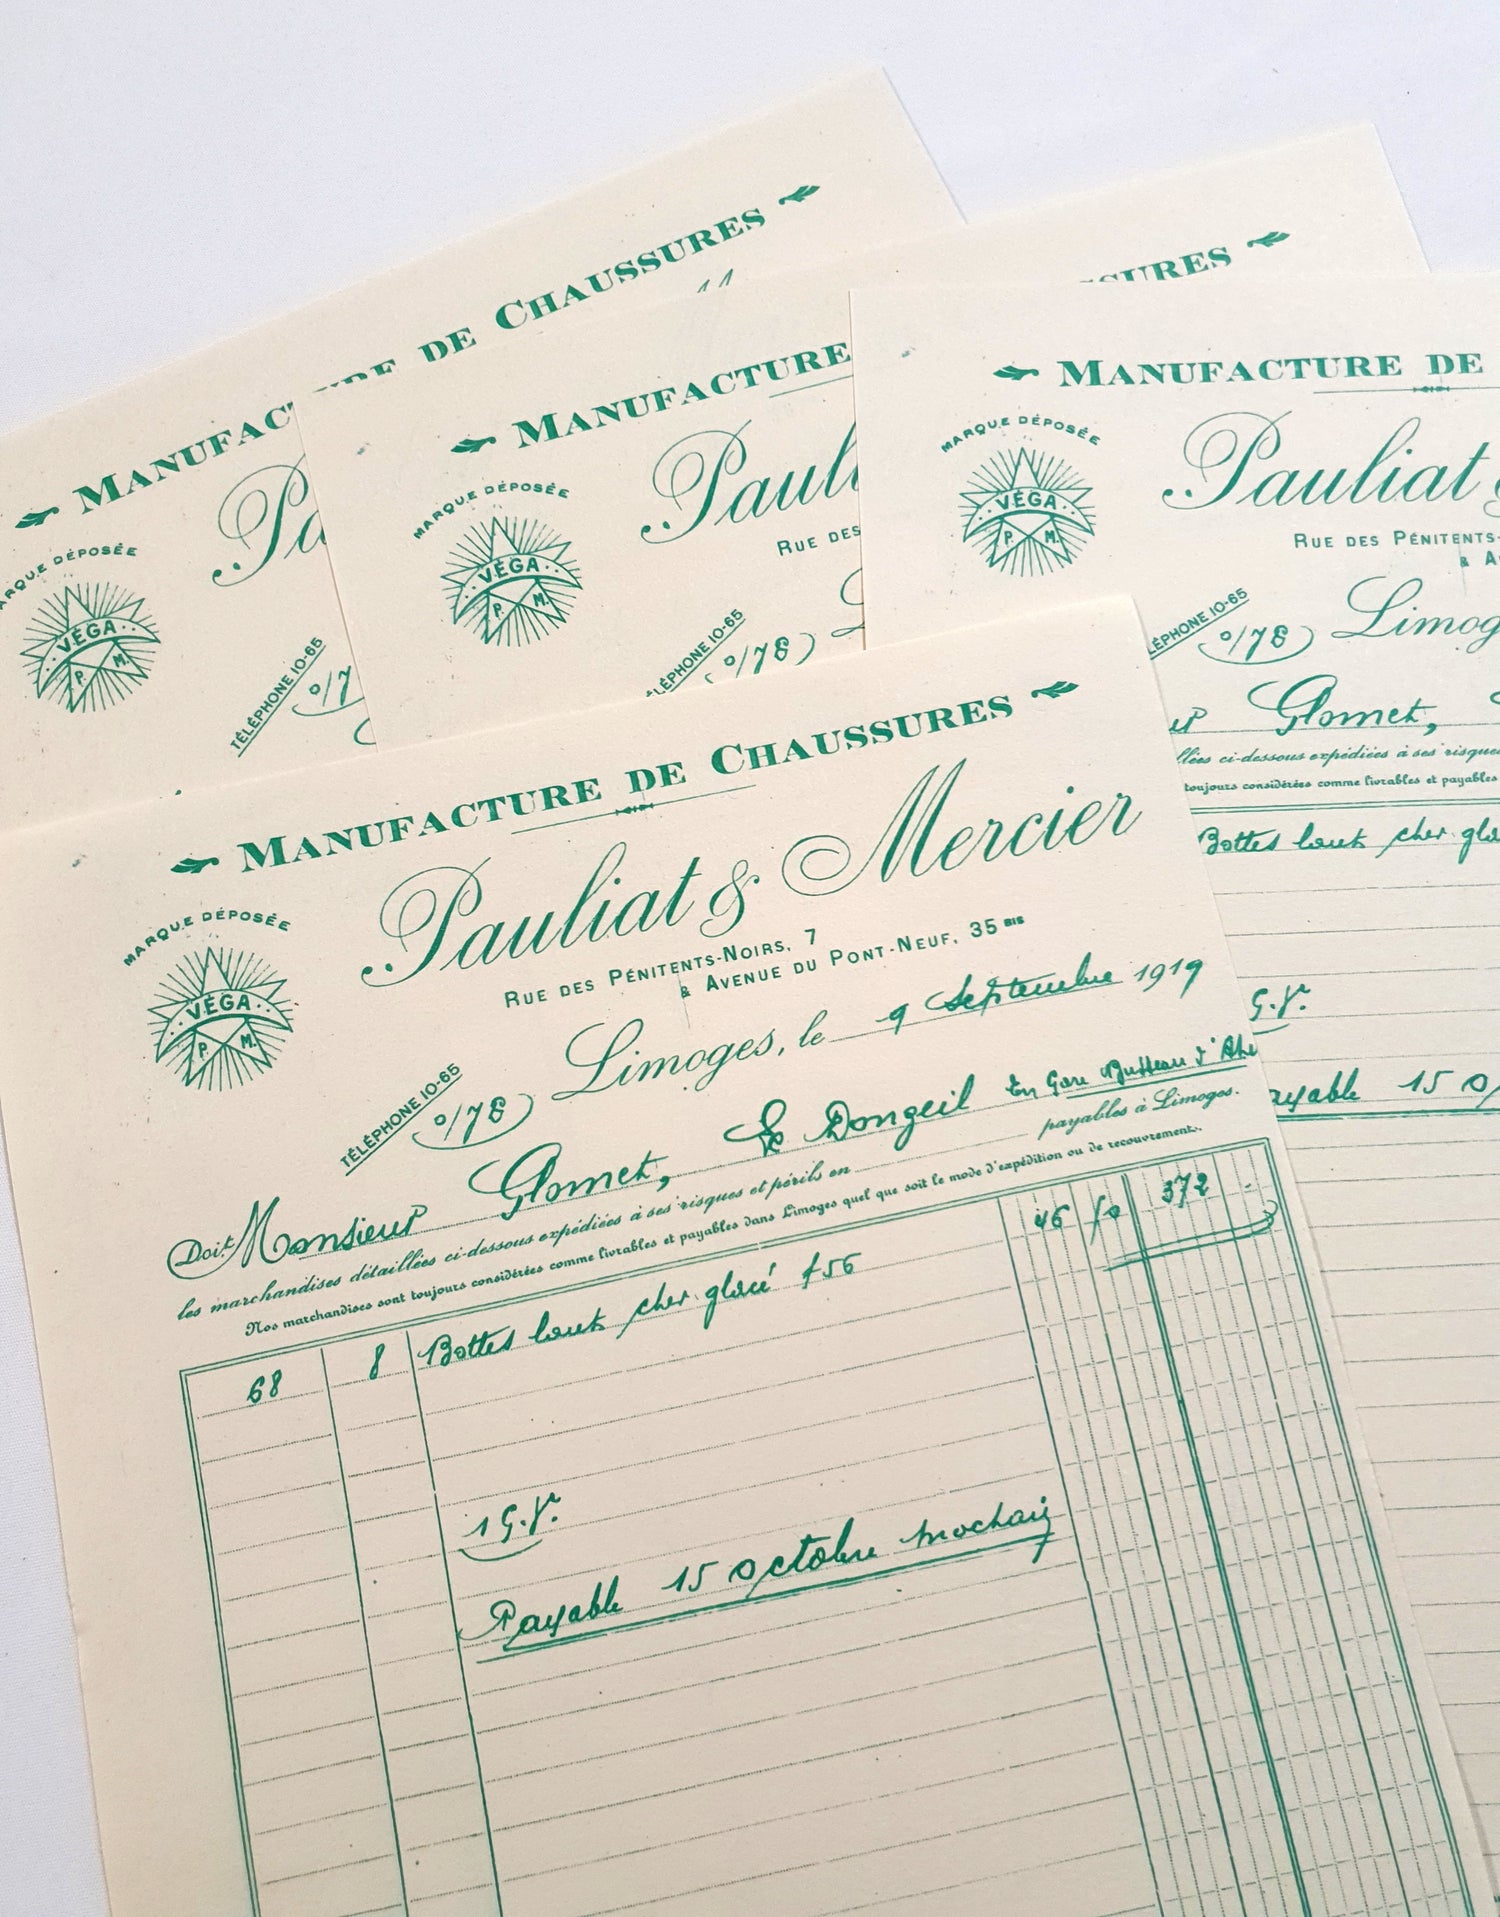 MANUFACTURE DE CHAUSSURES
MARQUE DÉPOSÉE
VÉGA
P. M.
TÉLÉPHONE 10-65
MANUFACTURE
MARQUE DÉPOSÉE
Paul
VÉGA
RUE DES
P. M.
TÉLÉPHONE 10-65
0/78
SSURES
MANUFACTURE DE
MARQUE DÉPOSÉE
Pauliat
VÉGA
RUE DES PÉNITENTS-
P. M.
TÉLÉPHONE 10-65
0/78
Limog
Glomet,
llées ci-dessous expédiées à ses risques
toujours considérées comme livrables et payables
Bottes cher gla
G.V.
ayable 15 o
MANUFACTURE DE CHAUSSURES
MARQUE DÉPOSÉE
Pauliat & Mercier
VÉGA
RUE DES PÉNITENTS-NOIRS, 7
P. M.
& AVENUE DU PONT-NEUF, 35 BIS
Limoges, le 9 Septembre 1919
TÉLÉPHONE 10-65
0/78
Doit Monsieur Glomet, Le Dongeil En Gare
les marchandises détaillées ci-dessous expédiées à ses risques et périls en payables à Limoges.
Nos marchandises sont toujours considérées comme livrables et payables dans Limoges quel que soit le mode d'expédition ou de recouvrement.
68 8 Bottes cher glacé 456 46 50 372 -
1 G.V.
Payable 15 octobre prochain